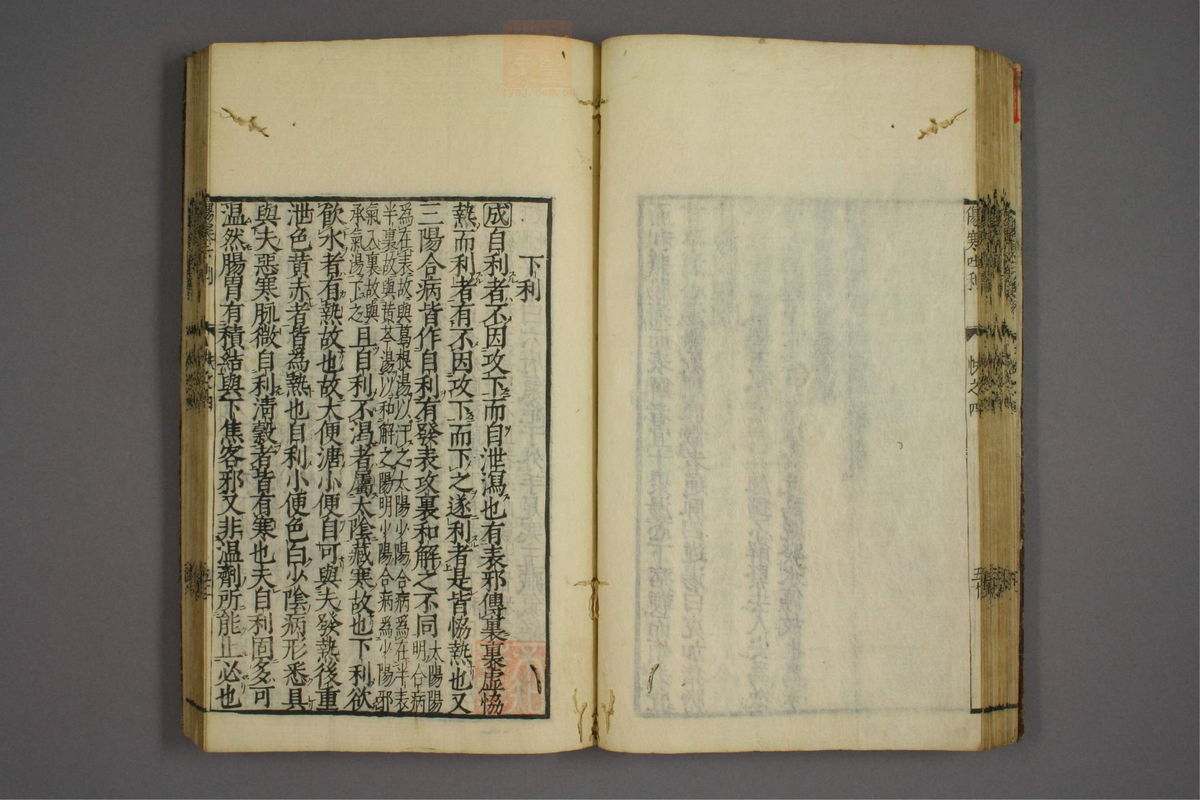 下利
成自利者不因攻下而自泄瀉也有表邪傳裏裏虛恊
熱而利者有不因攻下而下之遂利者是皆恊熱也又
三陽合病皆作自利有發表攻裏和解之不同太陽陽明合病
為在表故與葛根湯以汗之太陽少陽合病為在半表
半裏故與黃芩湯以和解之陽明少陽合病為少陽邪
氣入裏故與承氣湯下之且自利不渴者屬太陰藏寒故也下利欲
飲水者有熱故也故大便溏小便自可與夫發熱後重
泄色黃赤者皆為熱也自利小便色白少陰病形悉具
與夫惡寒脉微自利清穀者皆有寒也夫自利固多可
温然腸胃有積結與下焦客邪又非温劑所能止必也
傷寒吐利
帙之四